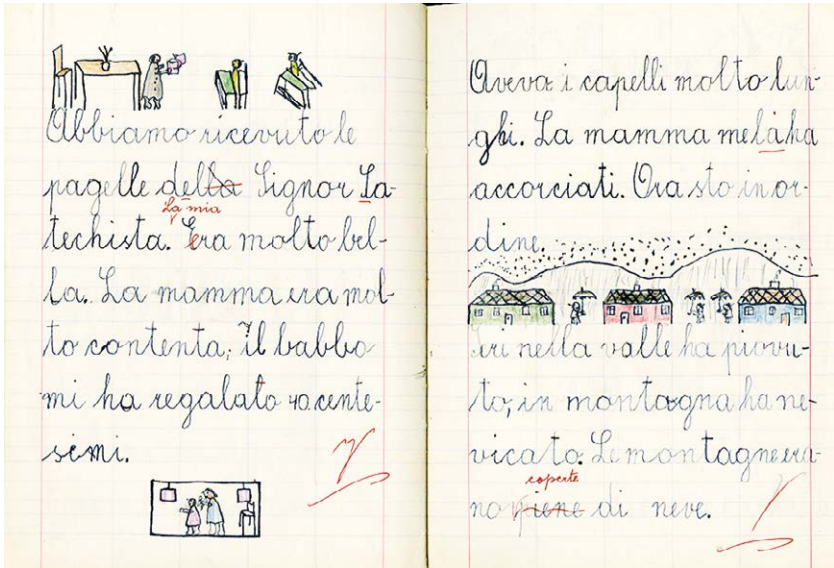 Abbiamo ricevuto le
pagelle della Signor Ca-
La mia
techista. Era molto bel-
la. La mamma era mol-
to contenta, il babbo
mi ha regalato 40 cente-
simi.
Aveva i capelli molto lun-
ghi. La mamma me là ha
accorciati. Ora sto in or-
dine.
Ieri nella valle ha piovu-
to, in montagna ha ne-
vicato. Le montagne era-
coperte
no piene di neve.